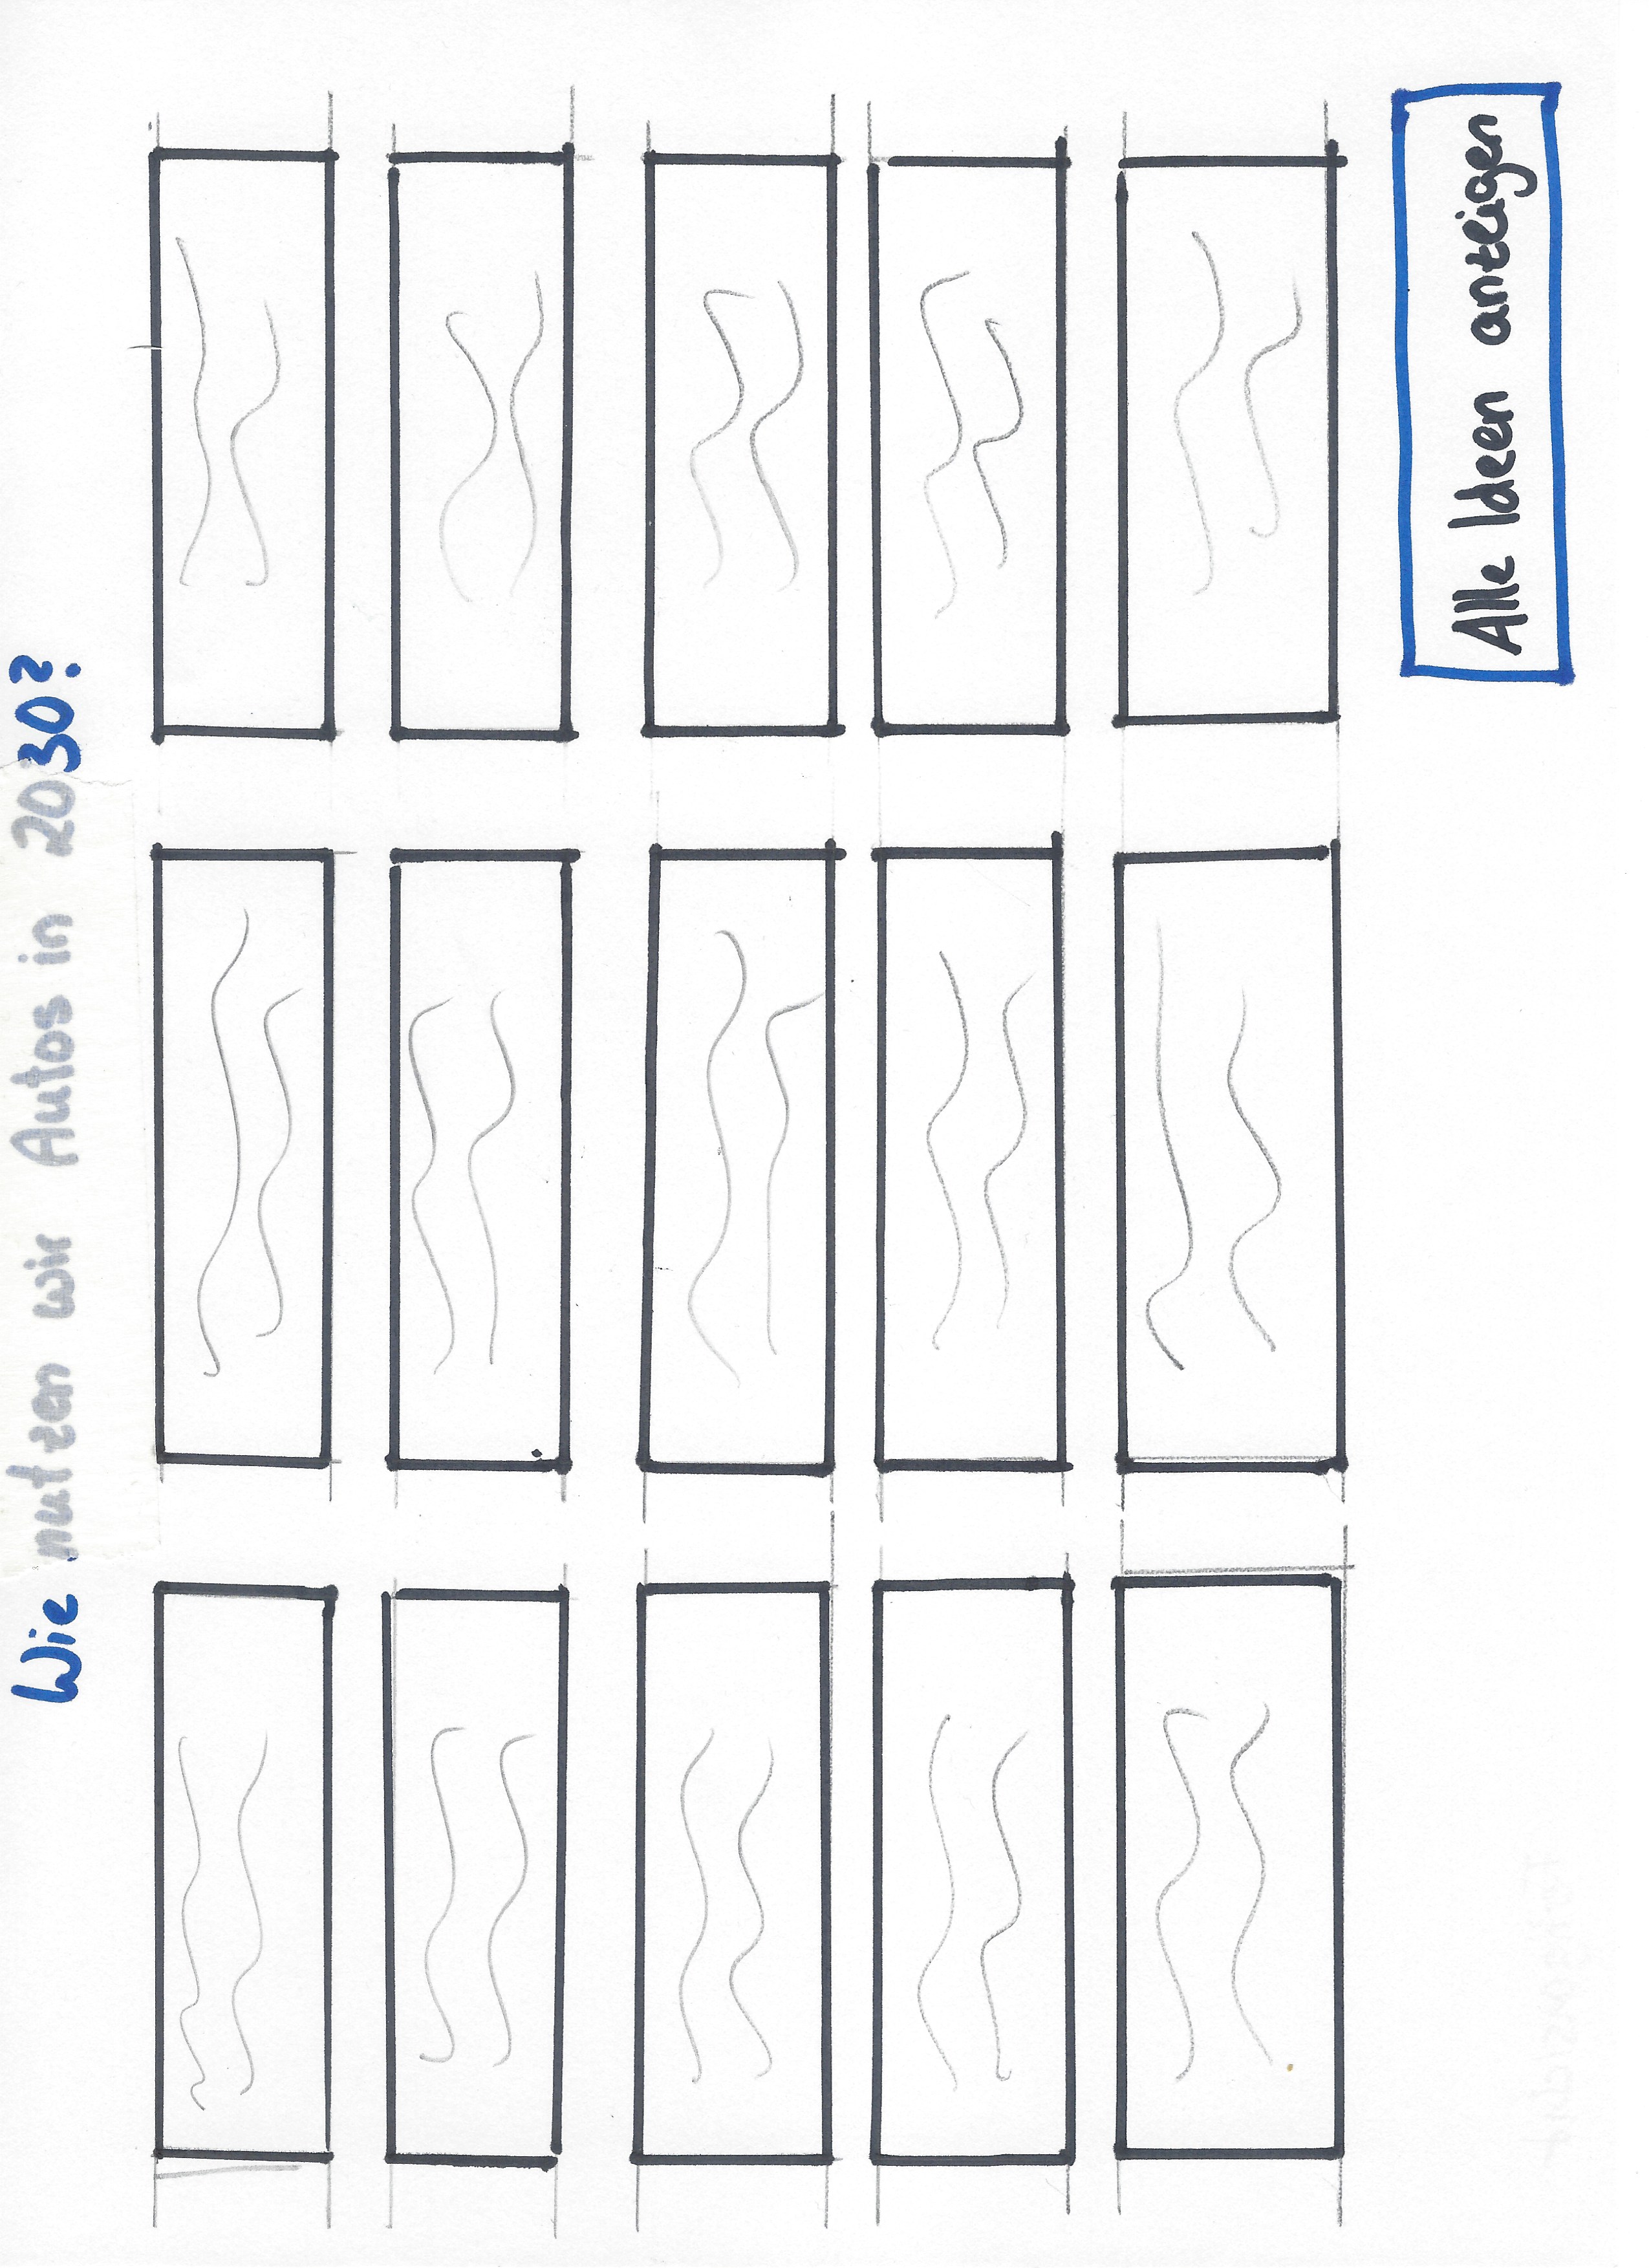 Wie nutzen wir Autos in 2030?
Alle Ideen anzeigen